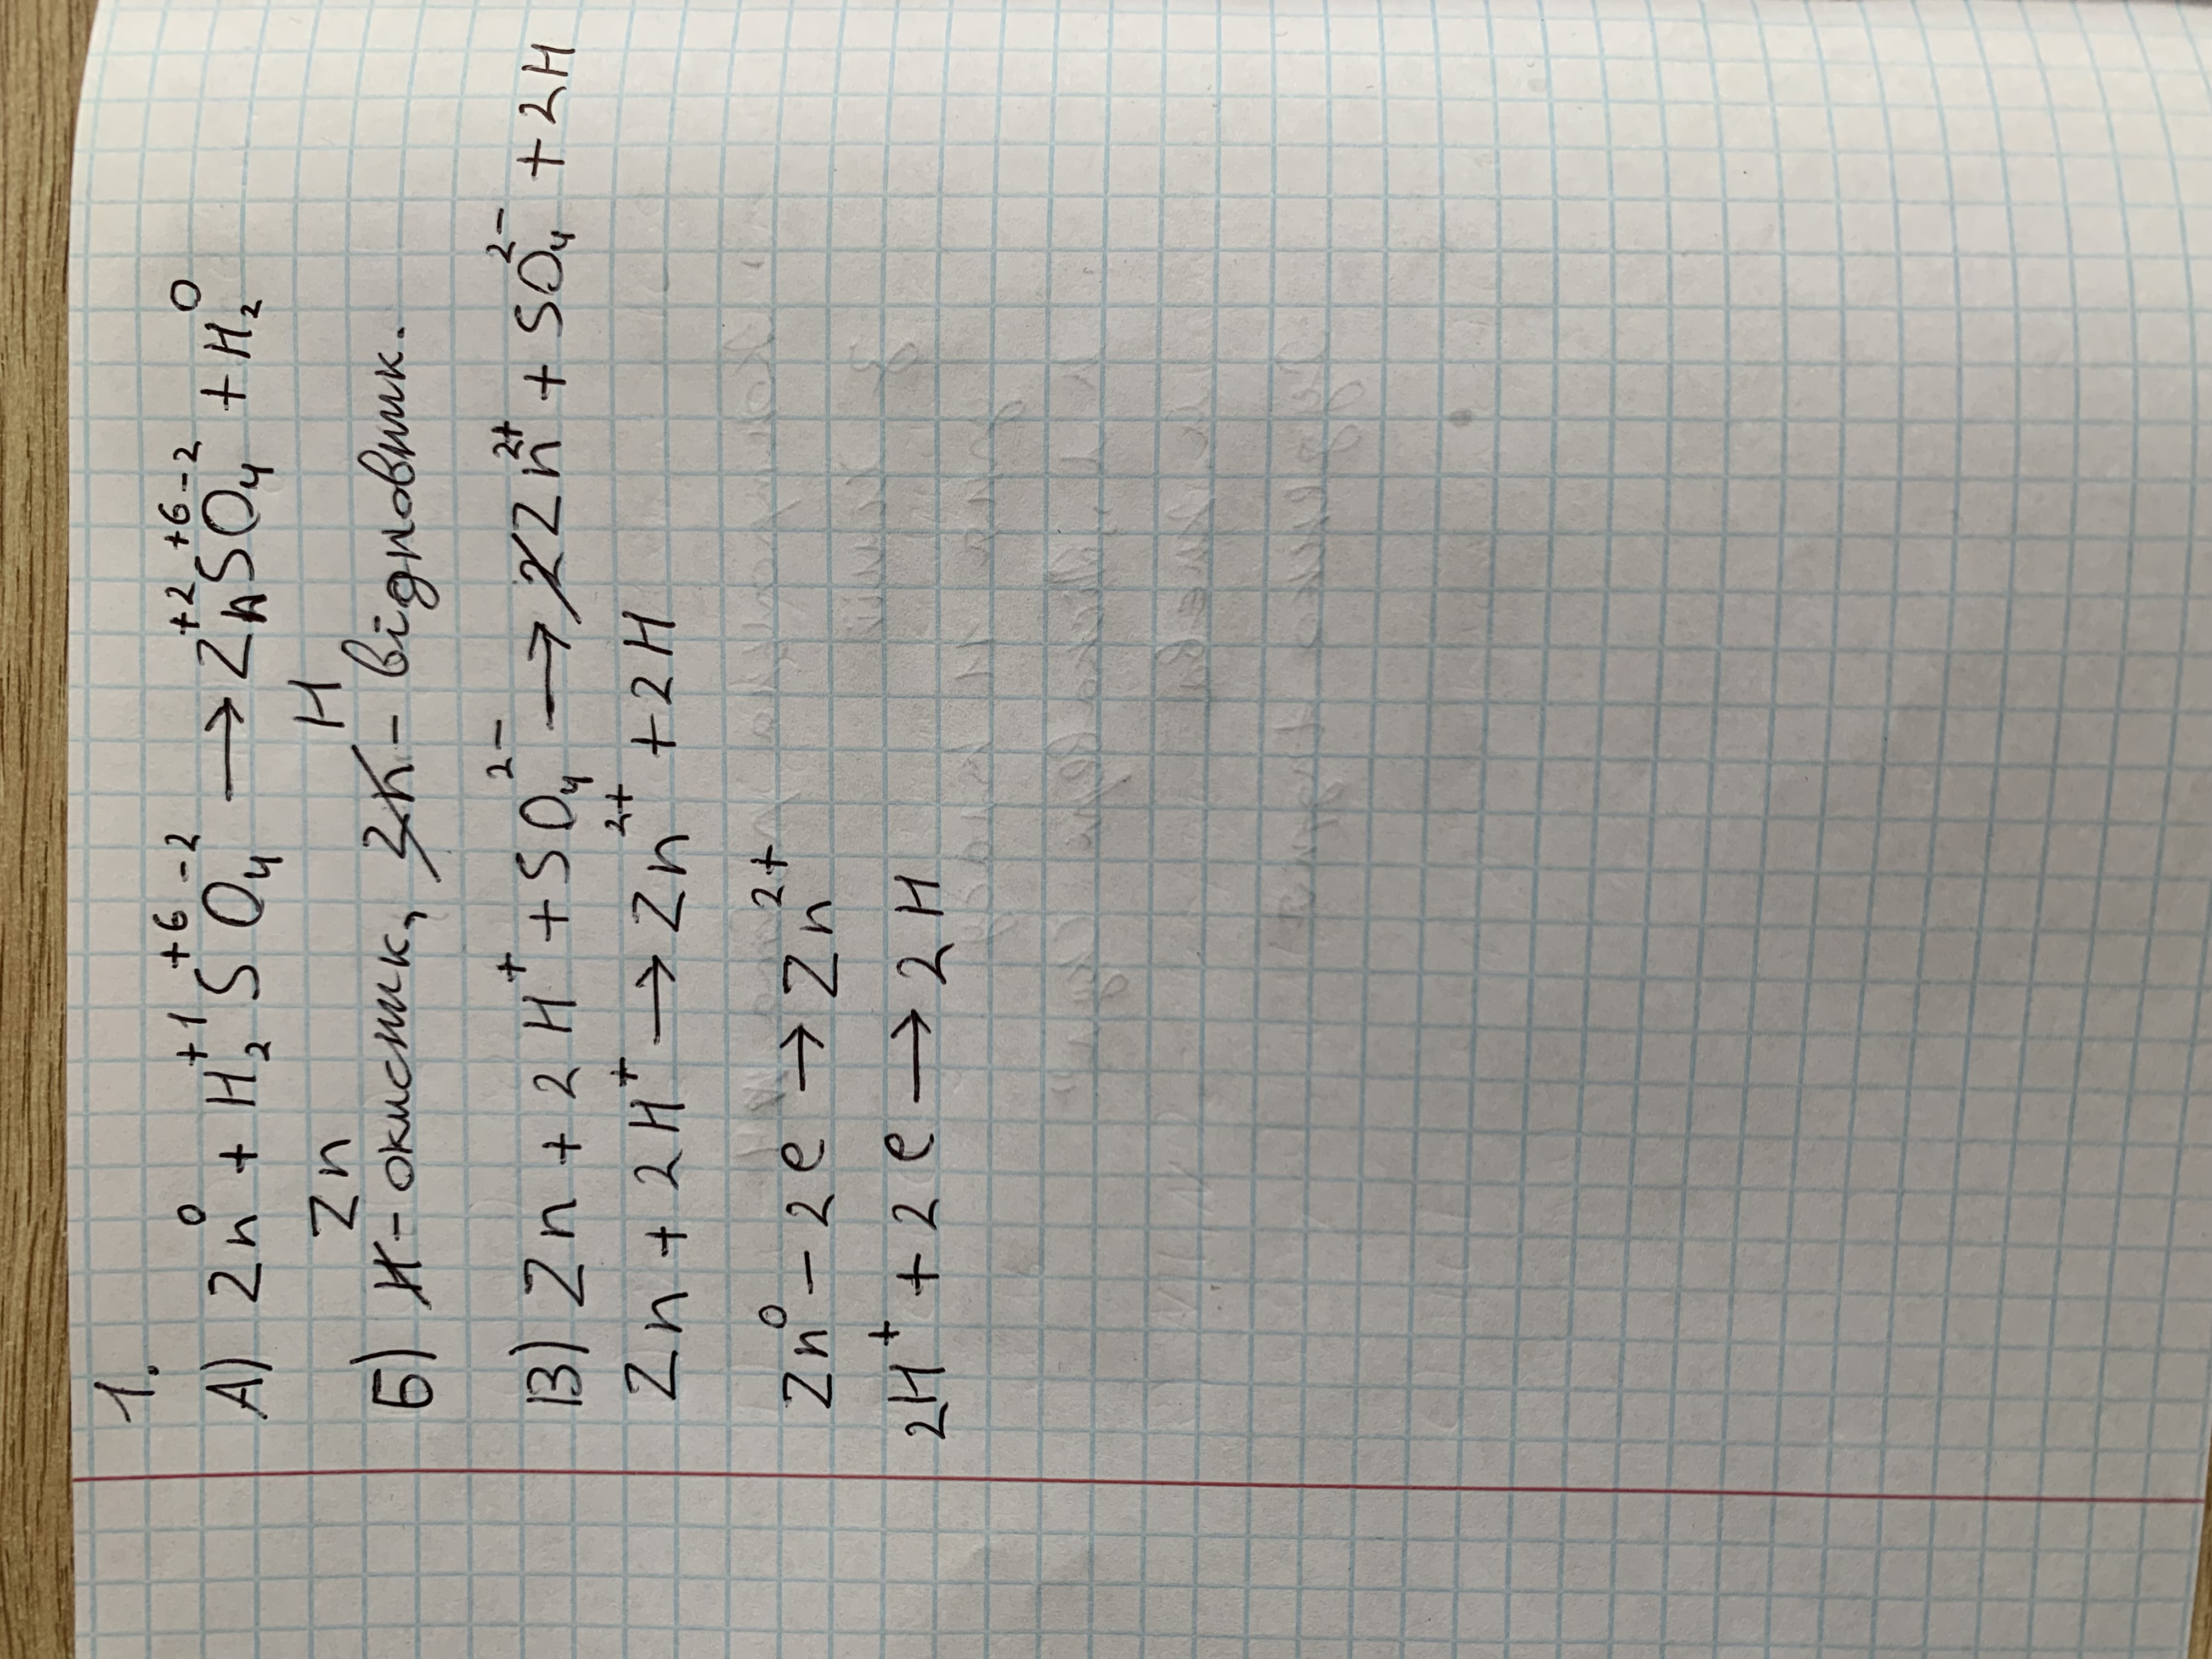 1.
А) Zn⁰ + H₂⁺¹S⁺⁶O₄⁻² → Zn⁺²S⁺⁶O₄⁻² + H₂⁰
Zn H
Б) H - окисник, Zn - відновник.
В) Zn + 2H⁺ + SO₄²⁻ → 2Zn²⁺ + SO₄²⁻ + 2H
Zn + 2H⁺ → Zn²⁺ + 2H
Zn⁰ - 2e → Zn²⁺
2H⁺ + 2e → 2H